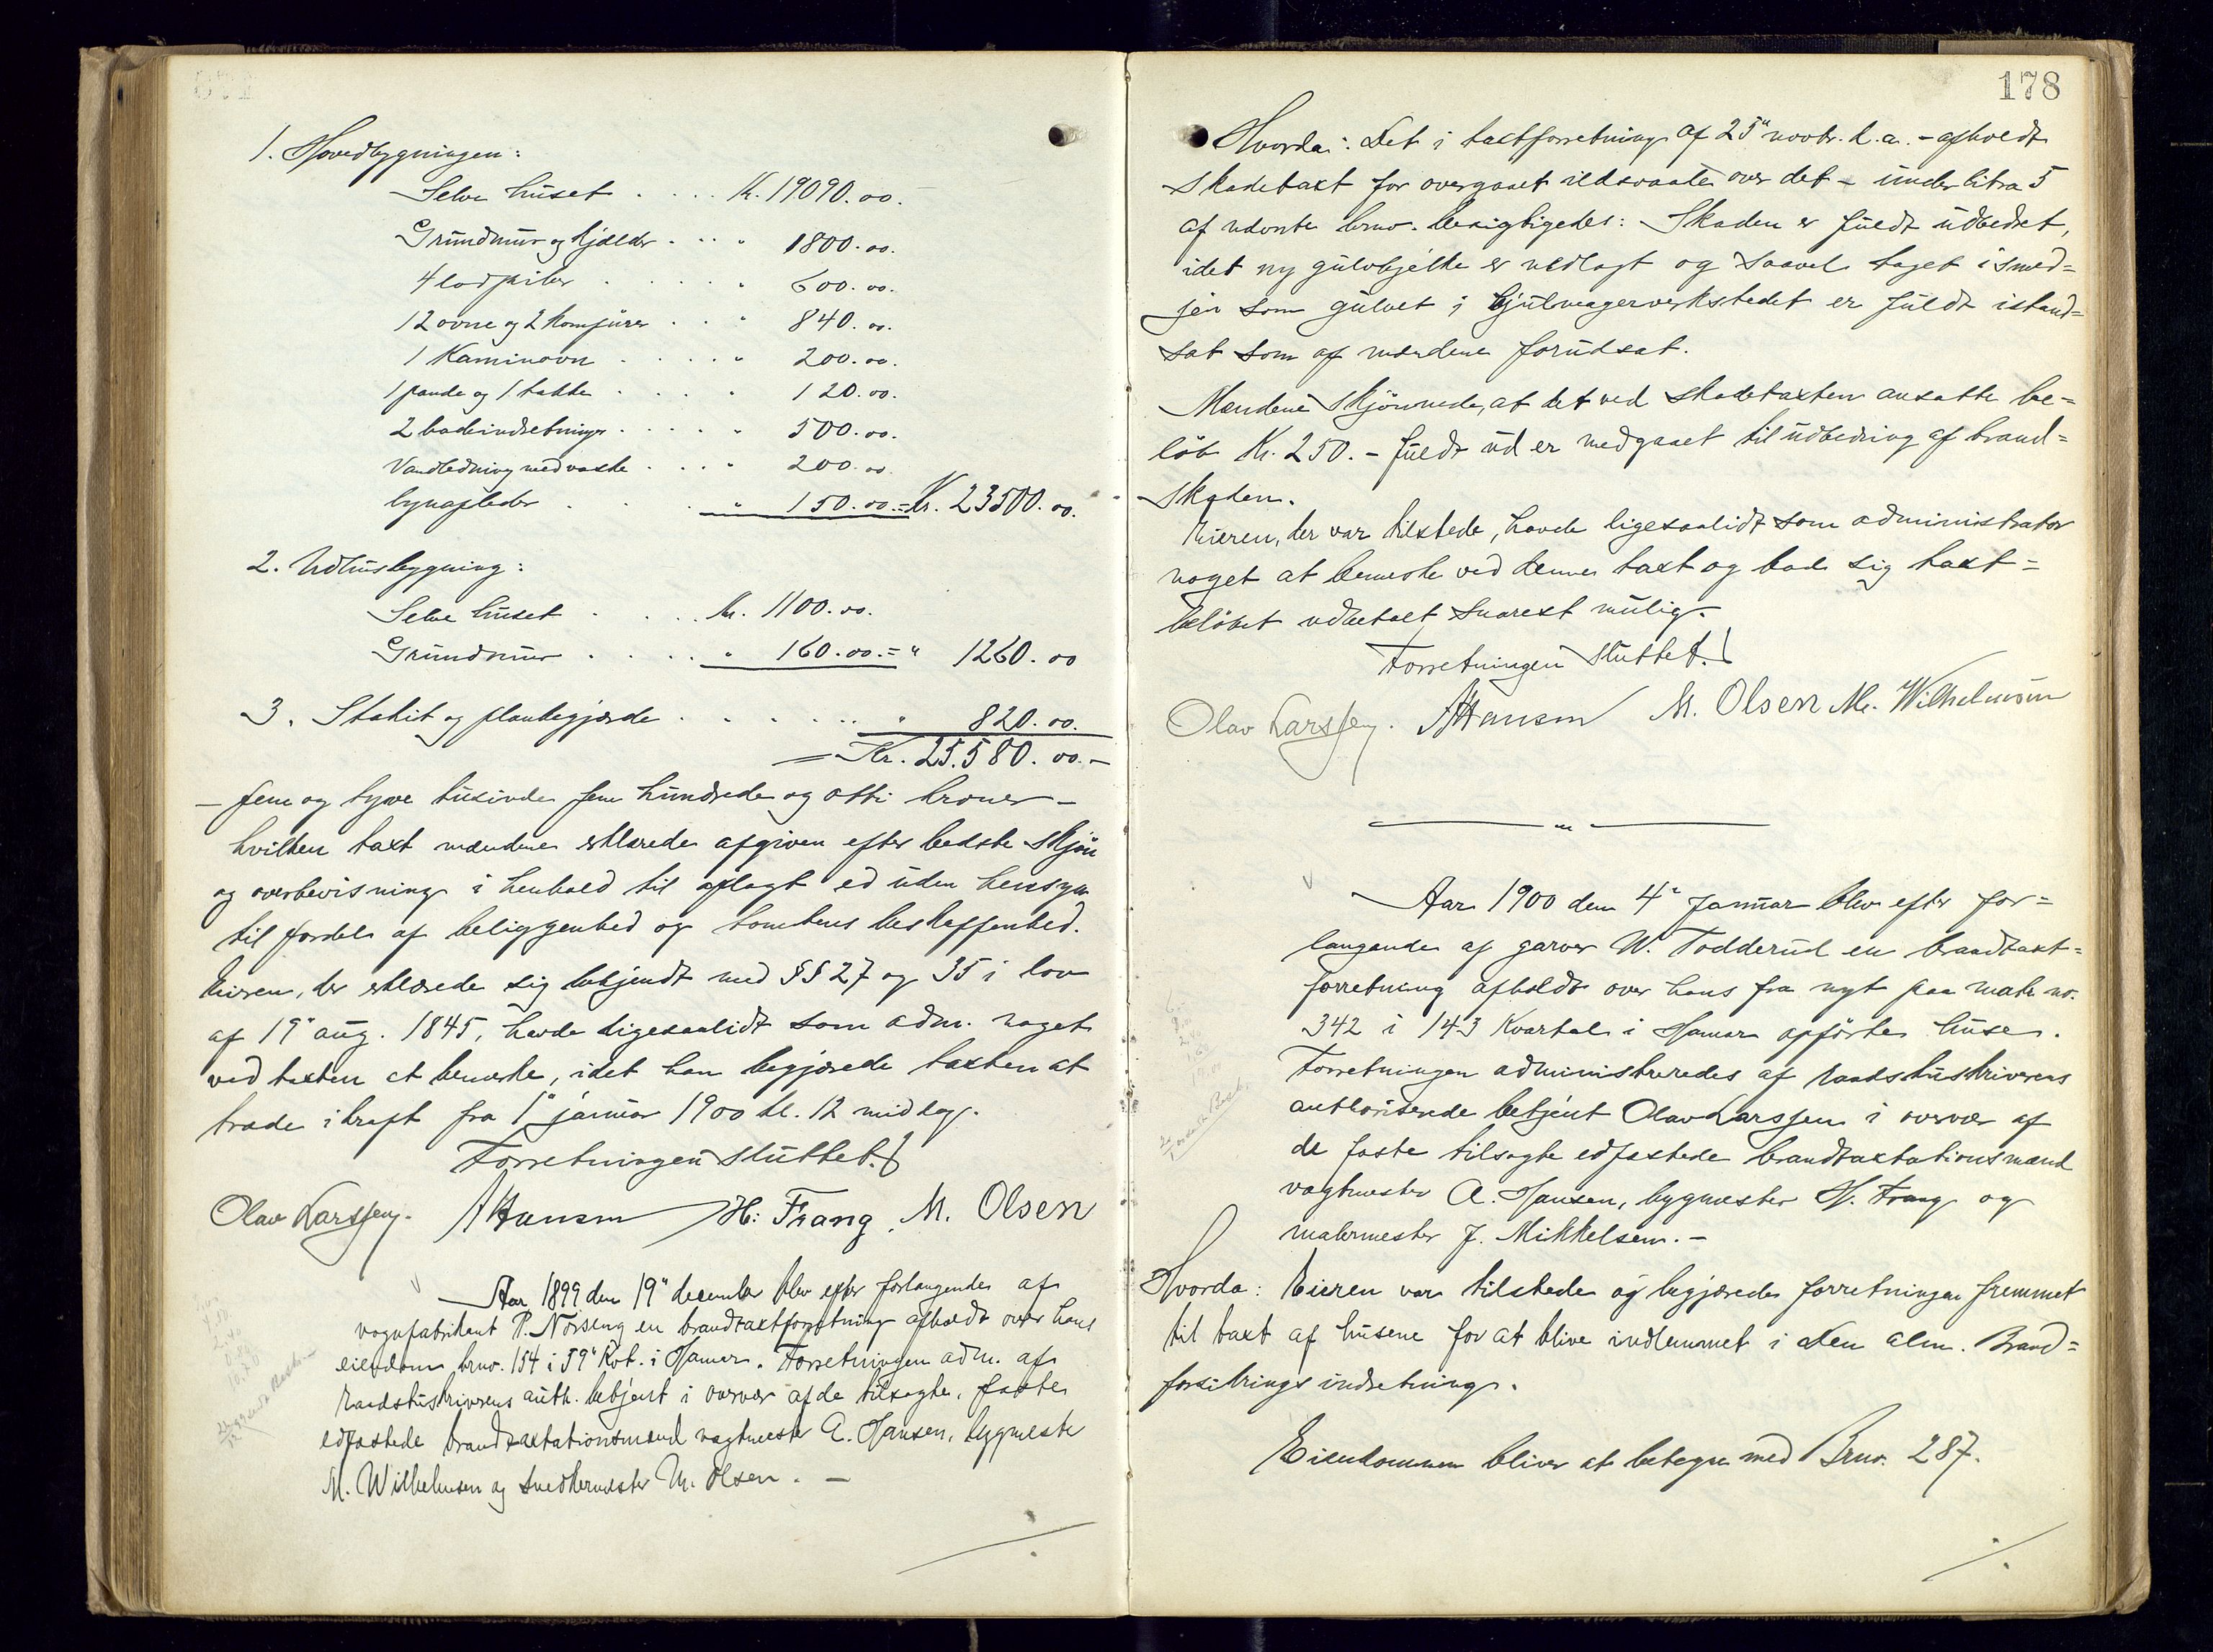 1. Hovedbygningen:
Selve huset . . . . Kr. 19090.00.
Grundmur og kjælder . . . " 1800.00.
4 lodpiber . . . . . " 600.00.
12 ovne og 2 komfürer . . " 840.00.
1 Kaminovn . . . . . " 200.00.
1 pande og 1 takke . . . . 120.00.
2 badeindretninger . . . . " 500.00.
Vandledning med vaske . . . " 200.00.
Lynafleder . . . " 150.00.= Kr. 23500.00.
2. Udhusbygning:
Selve huset . . . . Kr. 1100.00.
Grundmur . . . . " 160.00.= " 1260.00
3. Stakit og plankegjærde . . . . . . " 820.00.
= Kr. 25.580.00.-
- fem og tyve tusinde fem hundrede og otti kroner -
hvilken taxt mændene erklærede afgiven efter bedste skjön
og overbevisning i henhold til aflagt ed uden hensyn
til fordele af beliggenhed og tomtens beskaffenhed.
Eieren, der erklærede sig bekjendt med §§ 27 og 35 i lov
af 19" aug. 1845, havde ligesaalidt som adm. noget
ved taxten at bemerke, idet han begjærede taxten at
træde i kraft fra 1" januar 1900 kl. 12 middag.
Forretningen sluttet.
Olav Larssen. AHansen H: Frang. M. Olsen
Aar 1899 den 19" december blev efter forlangende af
vognfabrikant P. Norseng en brandtaxtforretning afholdt over hans
eiendom brno. 154 i 59" Kvt. i Hamar. Forretningen adm. af
Raadstuskriverens auth. betjent i overvær af de tilsagte, faste
edfæstede brandtaxtationsmænd vagtmester A. Hansen, bygmester
M. Wilhelmsen og snedkermester M. Olsen. -
178
Hvorda: Det i taxtforretning af 25" novbr. d.a. - afholdt
skadetaxt for overgaaet ildsvaade over det - under litra 5
af nævnte brno. besigtigedes: Skaden er fuldt udbedret,
idet ny gulvbjelke er nedlagt og saavel taget i smed=
jen som gulvet i hjulmagerverkstedet er fuldt istand=
sat som af mændene forudsat.
Mændene skjönnede, at det ved skadetaxten ansatte be=
löb Kr. 250.- fuldt ud er medgaaet til udbedring af brand=
skaden.
Eieren, der var tilstede, havde ligesaalidt som administrator
noget at bemerke ved denne taxt og bad sig taxt=
belöbet udbetalt snarest mulig.
Forretningen sluttet.
Olav Larssen. AHansen M. Olsen M. Wilhelmsen
Aar 1900 den 4" Januar blev efter for=
langende af garver W. Todderud en brandtaxt=
forretning afholdt over hans fra nyt paa matr. no.
342 i 143 Kvartal i Hamar opförte huse.
Forretningen administreredes af raadstuskriverens
authoriserede betjent Olav Larssen i overvær af
de faste tilsagte edfæstede brandtaxtationsmænd
vagtmester A. Hansen, bygmester H. Frang og
malermester J. Mikkelsen. -
Hvorda: Eieren var tilstede og begjærede forretningen fremmet
til taxt af husene for at blive indlemmet i Den alm. Brand=
forsikrings indretning.
Eiendommen bliver at betegne med Brno. 287.